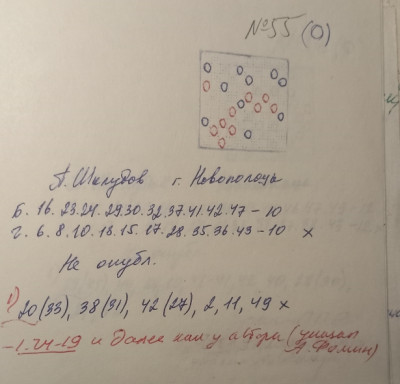 №55 (0)
А. Шклудов г. Новополоцк
Б. 16. 23. 24. 29. 30. 32. 37. 41. 42. 47 - 10
Ч. 6. 8. 10. 13. 15. 17. 28. 35. 36. 43 - 10 x
Не опубл.
1) 20(33), 38(31), 42(27), 2, 11, 49 x
-1. 24-19 и далее как у автора (указал
А. Фомин)